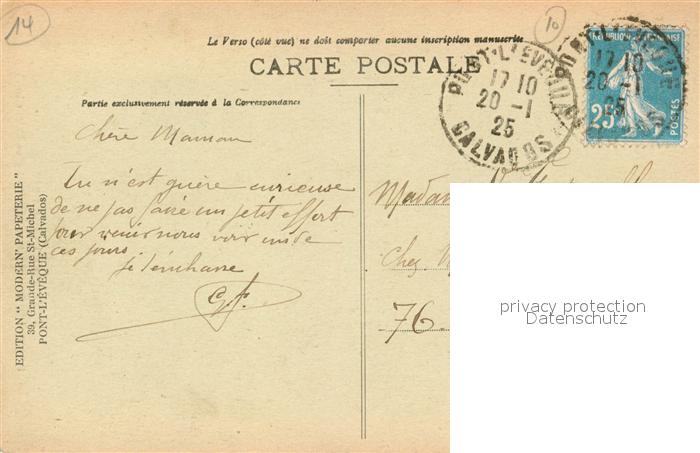 14
10
Le Verso (côté vue) ne doit comporter aucune inscription manuscrite
CARTE POSTALE
Partie exclusivement réservée à la Correspondance
REPUBLIQUE FRANÇAISE
25
POSTES
PONT-L'EVEQUE
17 10
20 -1
25
CALVADOS
17 10
20 -1
25
Chère Maman
Tu n'est guère curieuse
de ne pas faire un petit effort
pour venir nous voir un de
ces jours
Je t'embrasse
Madame
Chez
76.
EDITION " MODERN' PAPETERIE "
39, Grande-Rue St-Michel
PONT-L'ÉVÊQUE (Calvados)
privacy protection
Datenschutz